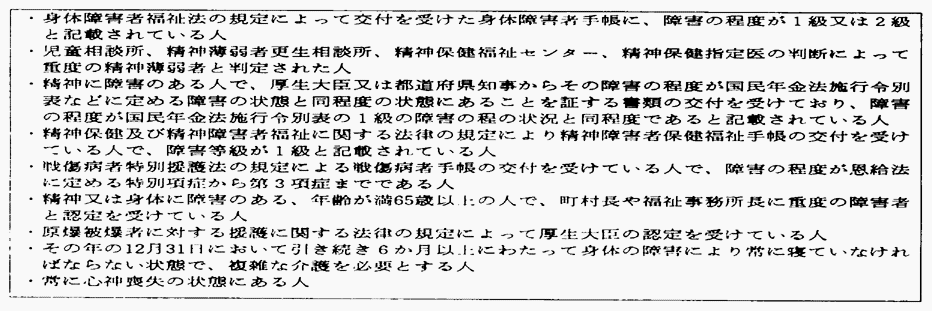 ・身体障害者福祉法の規定によって交付を受けた身体障害者手帳に、障害の程度が1級又は2級
と記載されている人
・児童相談所、精神薄弱者更生相談所、精神保健福祉センター、精神保健指定医の判断によって
重度の精神薄弱者と判定された人
・精神に障害のある人で、厚生大臣又は都道府県知事からその障害の程度が国民年金法施行令別
表などに定める障害の状態と同程度の状態にあることを証する書類の交付を受けており、障害
の程度が国民年金法施行令別表の1級の障害の程の状況と同程度であると記載されている人
・精神保健及び精神障害者福祉に関する法律の規定により精神障害者保健福祉手帳の交付を受け
ている人で、障害等級が1級と記載されている人
・戦傷病者特別援護法の規定による戦傷病者手帳の交付を受けている人で、障害の程度が恩給法
に定める特別項症から第3項症までである人
・精神又は身体に障害のある、年齢が満65歳以上の人で、町村長や福祉事務所長に重度の障害者
と認定を受けている人
・原爆被爆者に対する援護に関する法律の規定によって厚生大臣の認定を受けている人
・その年の12月31日において引き続き6か月以上にわたって身体の障害により常に寝ていなけれ
ばならない状態で、複雑な介護を必要とする人
・常に心神喪失の状態にある人